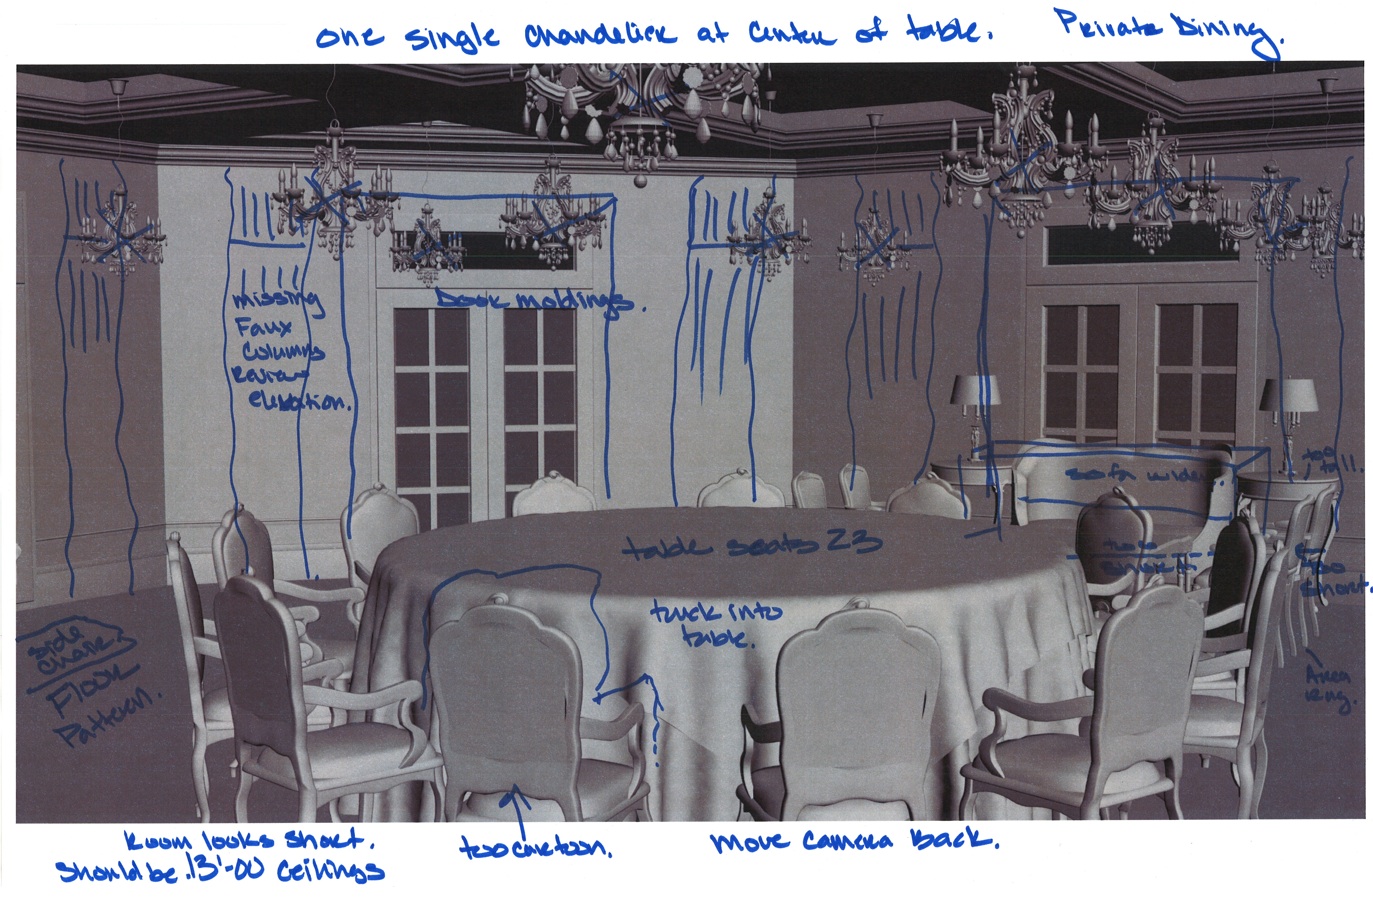 one single chandelier at center of table. Private Dining.
missing
Faux
Columns
Review
elevation.
Door moldings.
sofa wider.
too
tall.
table seats 23
too
short
too
short.
tuck into
table.
side
chairs
Floor
Pattern.
Area
rug.
Room looks short.
Should be 13'-00 Ceilings
too cartoon.
move camera back.